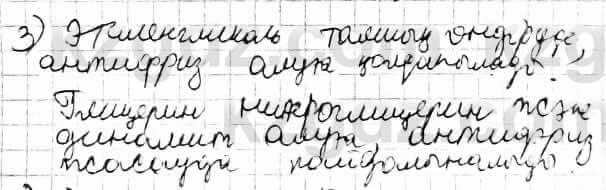 3) Этиленгликоль талшық өндіруде,
антифриз алуға қолданылады.
Глицерин нитроглицерин және
динамит алуға, антифриз
жасауда пайдаланылады.